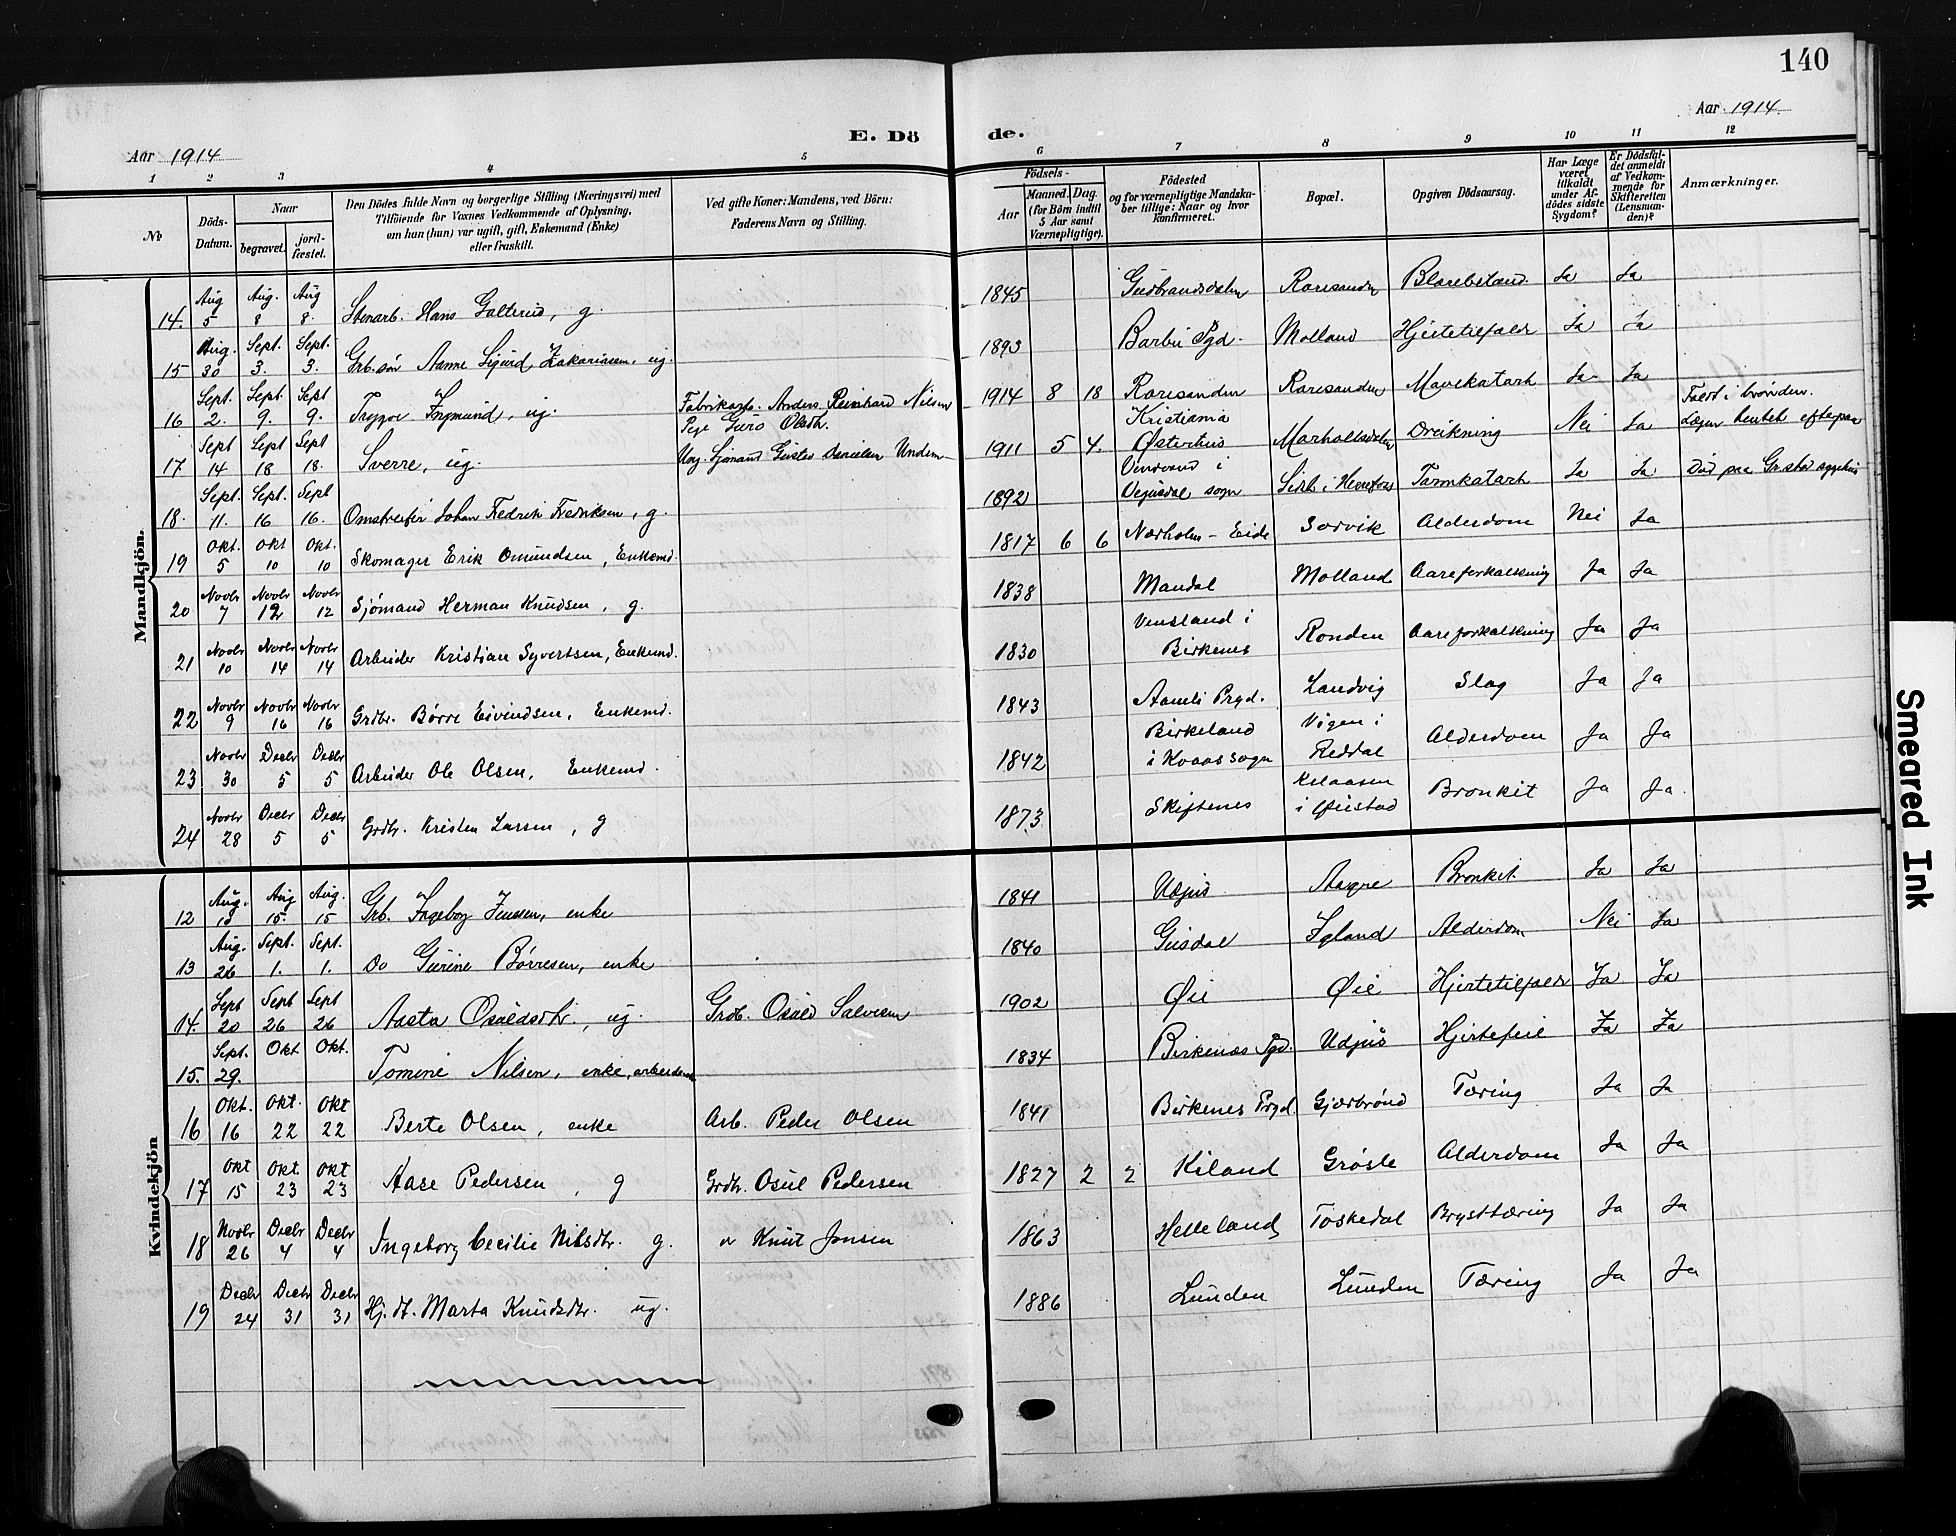 140
Aar 1914
E. Dö
de.
Aar 1914
1 2 3 4 5 6 7 8 9 10 11 12
No
Döds-Datum.
Naar
begravet.
jord-fæstet.
Den Dödes fulde Navn og borgerlige Stilling (Næringsvei) med
Tilföiende for Voxnes Vedkommende af Oplysning,
om han (hun) var ugift, gift, Enkemand (Enke)
eller fraskilt.
Ved gifte Koner: Mandens, ved Börn:
Faderens Navn og Stilling.
Födsels-
Aar
Maaned. Dag.
(for Börn indtil
5 Aar samt
Værnepligtige).
Födested
og for værnepligtige Mandska-
ber tillige: Naar og hvor
konfirmeret.
Bopæl.
Opgiven Dödsaarsag.
Har Læge
været
tilkaldt
under Af-
dödes sidste
Sygdom?
Er Dödsfal-
det anmeldt
af Vedkom-
mende for
Skifteretten
(Lensman-
den)?
Anmærkninger.
Mandkjön.
14. Aug 5 Aug. 8 Aug 8. Stenarb. Hans Galterud, g. 1845 Gudbrandsdalen Roresanden Ja Ja
15 Aug. 30 Sept. 3. Sept. 3. Grb. søn Aanne Sigurd Zakariasen, ug. 1893 Barbu Pgd. Molland Hjertetilfælde Ja Ja
16 Sept. 2. Sept. 9. Sept 9. Trygve Ingmund, ug. Fabrikarb. Anders Reinhard Nilsen 1914 8 18 Roresanden Roresanden Mavekatarh Ja Ja
17 Sept 14 Sept 18 Sept 18. Sverre, ug. Pige Guro Olsdtr. Ung. Sjømand Gustav Danielsen 1911 5 4. Kristiania Østerhus Morholtsdalen Drukning Nei Ja Faldt i brønden. Lægen hentet efterpaa
18. Sept. 11. Sept. 16 Sept 16. Omstreifer Johan Fredrik Fredriksen, g. 1892 Vegusdal sogn Tarmkatarh Ja Ja Død paa Gr.stad sygehus
19 Okt. 5 Okt 10 Okt. 10 Skomager Erik Omundsen, Enkemd. 1817 6 6 Nørholm - Eide Sørvik Alderdom Nei Ja
20 Novbr 7 Novbr 12 Novbr 12 Sjömand Herman Knudsen, g. 1838 Mandal Molland Aareforkalkning Ja Ja
21 Novbr 10 Novbr 14 Novbr 14 Arbeider Kristian Syvertsen, Enkemd. 1830 Vensland i Birkenes Ronden Aareforkalkning Ja Ja
22 Novbr 9 Novbr 16 Novbr 16 Grdbr. Börre Eivindsen, Enkemd. 1843 Aamli Prgd. Landvig Slag Ja Ja
23 Novbr 30 Decbr 5 Decbr 5 Arbeider Ole Olsen, Enkemd. 1842 Birkeland i Kvaas sogn Vigen i Reddal Alderdom Ja Ja
24 Novbr 28 Decbr 5 Decbr 5 Grdbr. Kristen Larsen, g 1873 Skiftenes i Øiestad Bronkit Ja Ja.
Kvindekjön
12 Aug. 10 Aug 15. Aug. 15 Grb. Ingeborg Jenssen, enke 1841 Udjus Aagre Bronkit Ja Ja
13 Aug. 26 Sept. 1. Sept. 1. Do Gurine Børresen, enke 1840 Gusdal Igland Alderdom Nei Ja
14. Sept 20 Sept 26 Sept 26 Aasta Osuldsdtr., ug. Grdb. Osuld Salvesen 1902 Øie Øie Hjertetilfælde Ja Ja
15. Sept. 29. Okt Okt. Tomine Nilsen, enke, 1834 Birkenæs Pgd. Udjus Hjertefeil Ja Ja
16 Okt. 16 Okt. 22 Okt 22 Berte Olsen, enke Arb. Peder Olsen 1841 Birkenes Prgd Gjærbrönd Tæring Ja Ja
17 Okt 15 Okt. 23 Okt 23 Aase Pedersen, g Grdbr. Osul Pedersen 1827 2 2 Kiland Grøsle Alderdom Ja Ja
18 Novbr 26 Decbr 4 Decbr 4 Ingeborg Cecilie Nilsdtr. g. " Knut Jonsen 1863 Helleland Toskedal Brysttæring Ja Ja
19 Decbr 24 Decbr 31 Decbr 31 Hj. dt. Marta Knudsdtr. ug. 1886 Lunden Lunden Tæring Ja Ja
Smeared Ink